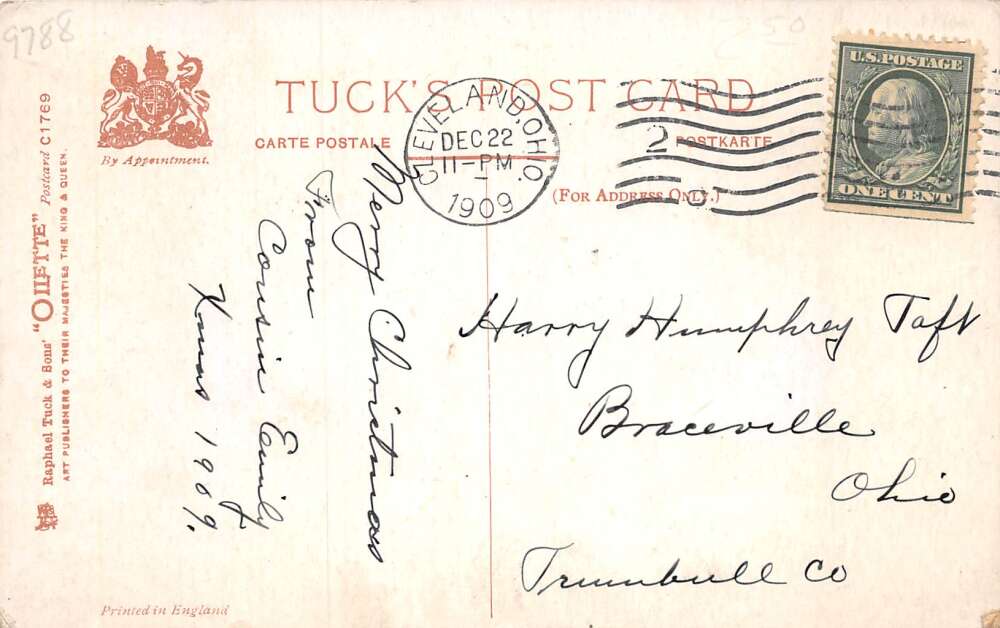 9788
50
By Appointment.
TUCK'S POST CARD
CARTE POSTALE
POSTKARTE
(FOR ADDRESS ONLY.)
CLEVELAND, OHIO.
DEC 22
11-PM
1909
2
U.S. POSTAGE
ONE CENT
Raphael Tuck & Sons' "OILETTE" Postcard C1769
ART PUBLISHERS TO THEIR MAJESTIES THE KING & QUEEN.
Merry Christmas
From
Cousin Emily
Xmas 1909.
Harry Humphrey Taft
Braceville
Ohio
Trumbull Co
Printed in England